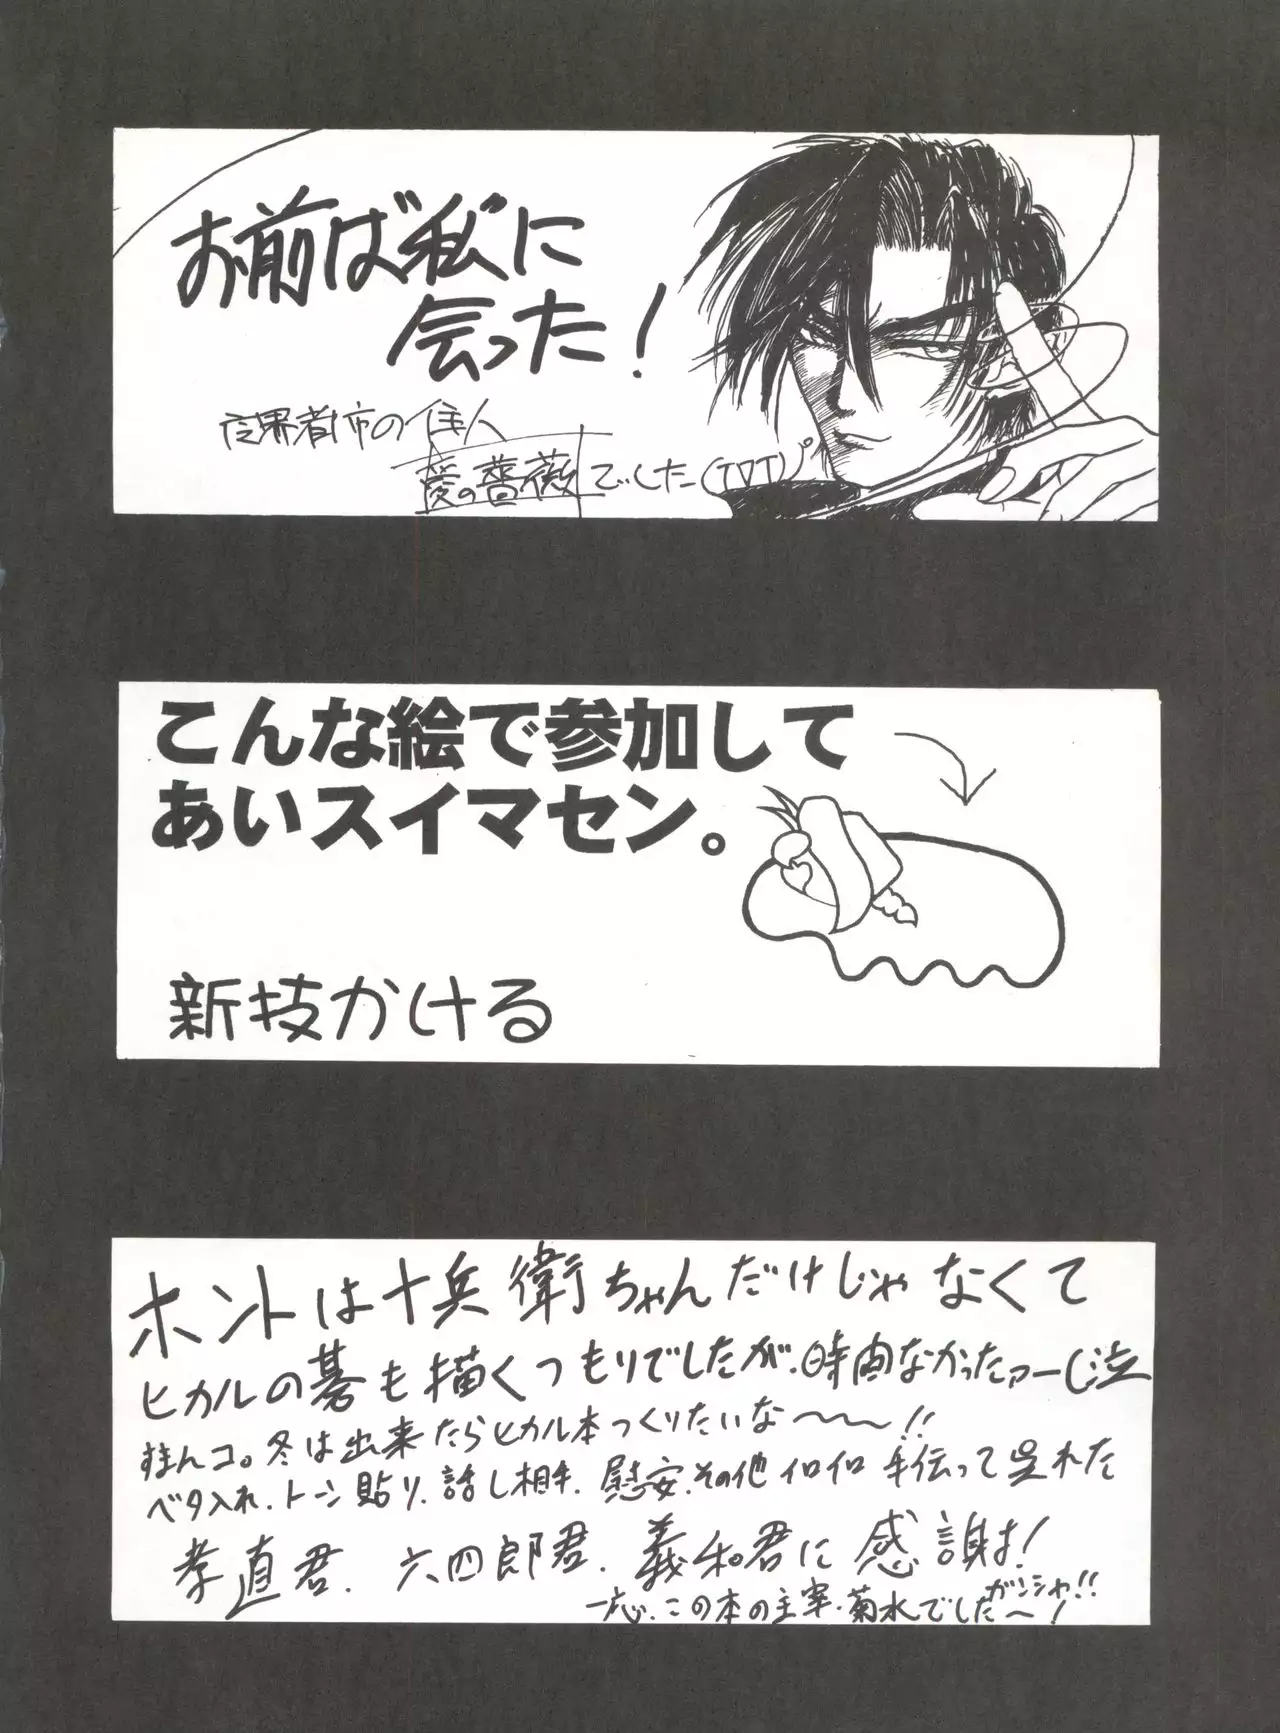 お前ば私に
会った!
魔界都市の住人
愛の薔薇でした(TㇵT)パ
こんな絵で参加して
あいスイマセン。
新技かける
ホントは十兵衛ちゃんだけじゃなくて
ヒカルの碁も描くつもりでしたが、時間なかったァーじ泣
すまんコ。冬は出来たらヒカル本つくりたいな〜〜〜!!
ベタ入れ、トーン貼り、話し相手、慰安、その他イロイロ手伝って呉れた
孝直君、六四郎君、義和君に感謝ォ!
ガンシャ!!
一応、この本の主宰・菊水でした〜!